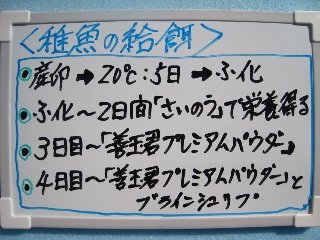 <稚魚の給餌>
産卵➡20℃:5日➡ふ化
ふ化~2日間「さいのう」で栄養得る
3日目~「善玉君プレミアムパウダー」
4日目~「善玉君プレミアムパウダー」と
ブラインシュリプ